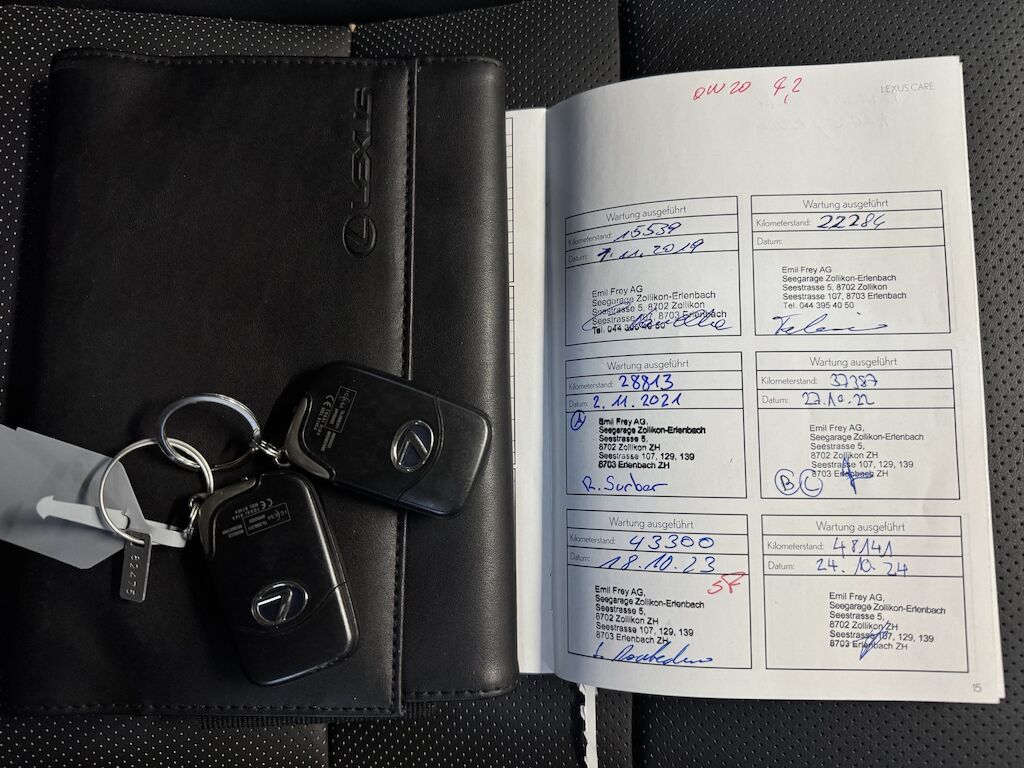 LEXUS
82475
OW20 4,2
LEXUS CARE
Wartung ausgeführt
Kilometerstand: 15539
Datum: 7.11.2019
Emil Frey AG
Seegarage Zollikon-Erlenbach
Seestrasse 5, 8702 Zollikon
Seestrasse 107, 8703 Erlenbach
Tel. 044 395 40 50
Wartung ausgeführt
Kilometerstand: 22284
Datum:
Emil Frey AG
Seegarage Zollikon-Erlenbach
Seestrasse 5, 8702 Zollikon
Seestrasse 107, 8703 Erlenbach
Tel. 044 395 40 50
Wartung ausgeführt
Kilometerstand: 28813
Datum: 2.11.2021
A
Emil Frey AG,
Seegarage Zollikon-Erlenbach
Seestrasse 5,
8702 Zollikon ZH
Seestrasse 107, 129, 139
8703 Erlenbach ZH
R. Surber
Wartung ausgeführt
Kilometerstand: 37387
Datum: 27.10.22
Emil Frey AG,
Seegarage Zollikon-Erlenbach
Seestrasse 5,
8702 Zollikon ZH
Seestrasse 107, 129, 139
8703 Erlenbach ZH
B C
Wartung ausgeführt
Kilometerstand: 43300
Datum: 18.10.23
Emil Frey AG,
Seegarage Zollikon-Erlenbach
Seestrasse 5,
8702 Zollikon ZH
Seestrasse 107, 129, 139
8703 Erlenbach ZH
Wartung ausgeführt
Kilometerstand: 48141
Datum: 24.10.24
Emil Frey AG,
Seegarage Zollikon-Erlenbach
Seestrasse 5,
8702 Zollikon ZH
Seestrasse 107, 129, 139
8703 Erlenbach ZH
15